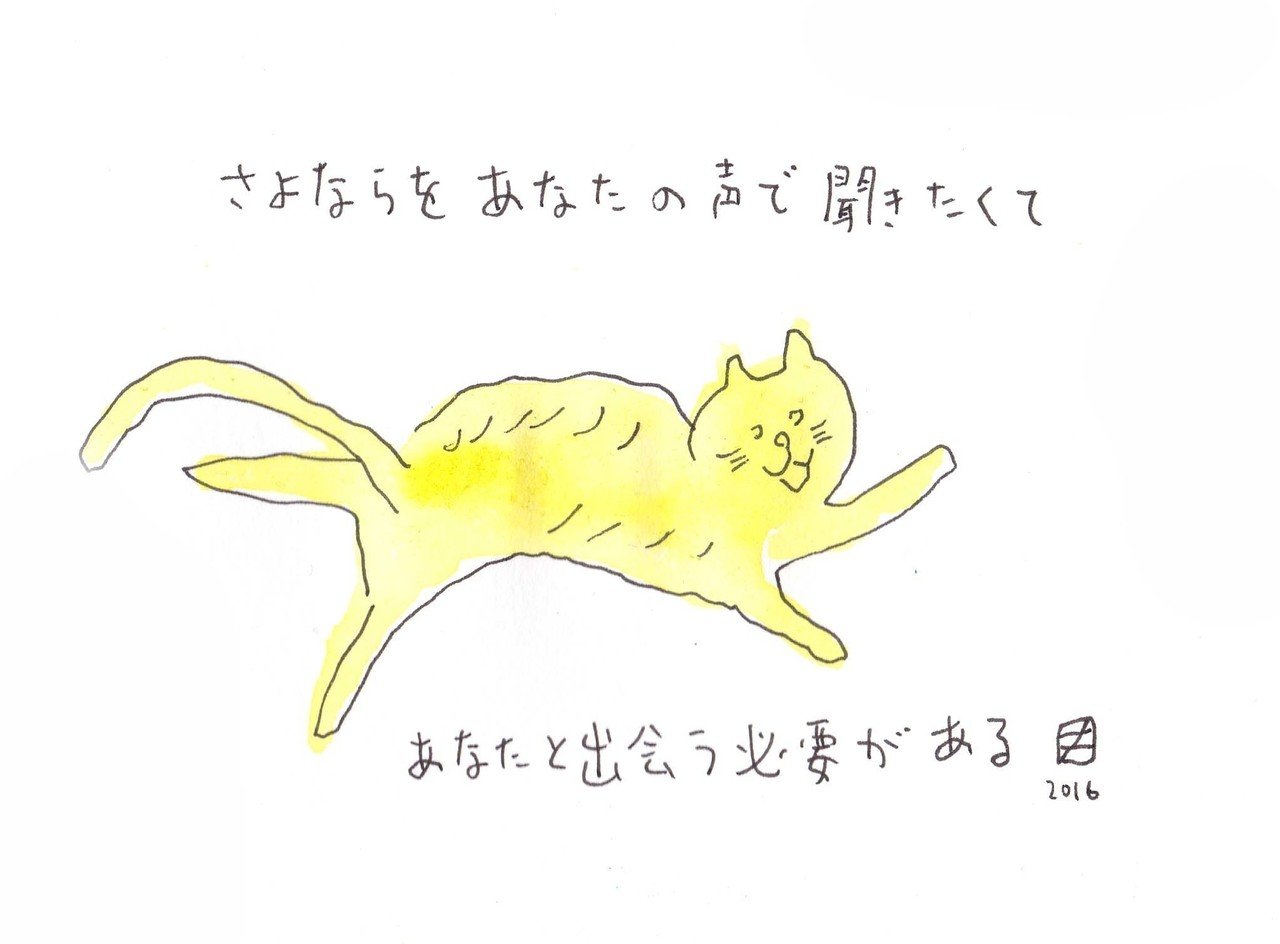 さよならを あなたの声で 聞きたくて
あなたと出会う必要がある
2016